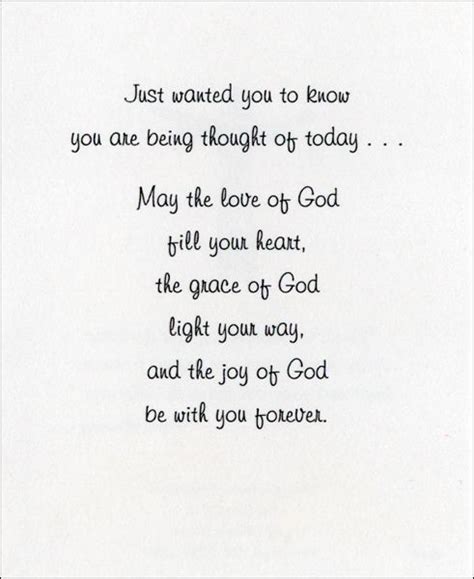 Just wanted you to know
you are being thought of today . . .
May the love of God
fill your heart,
the grace of God
light your way,
and the joy of God
be with you forever.